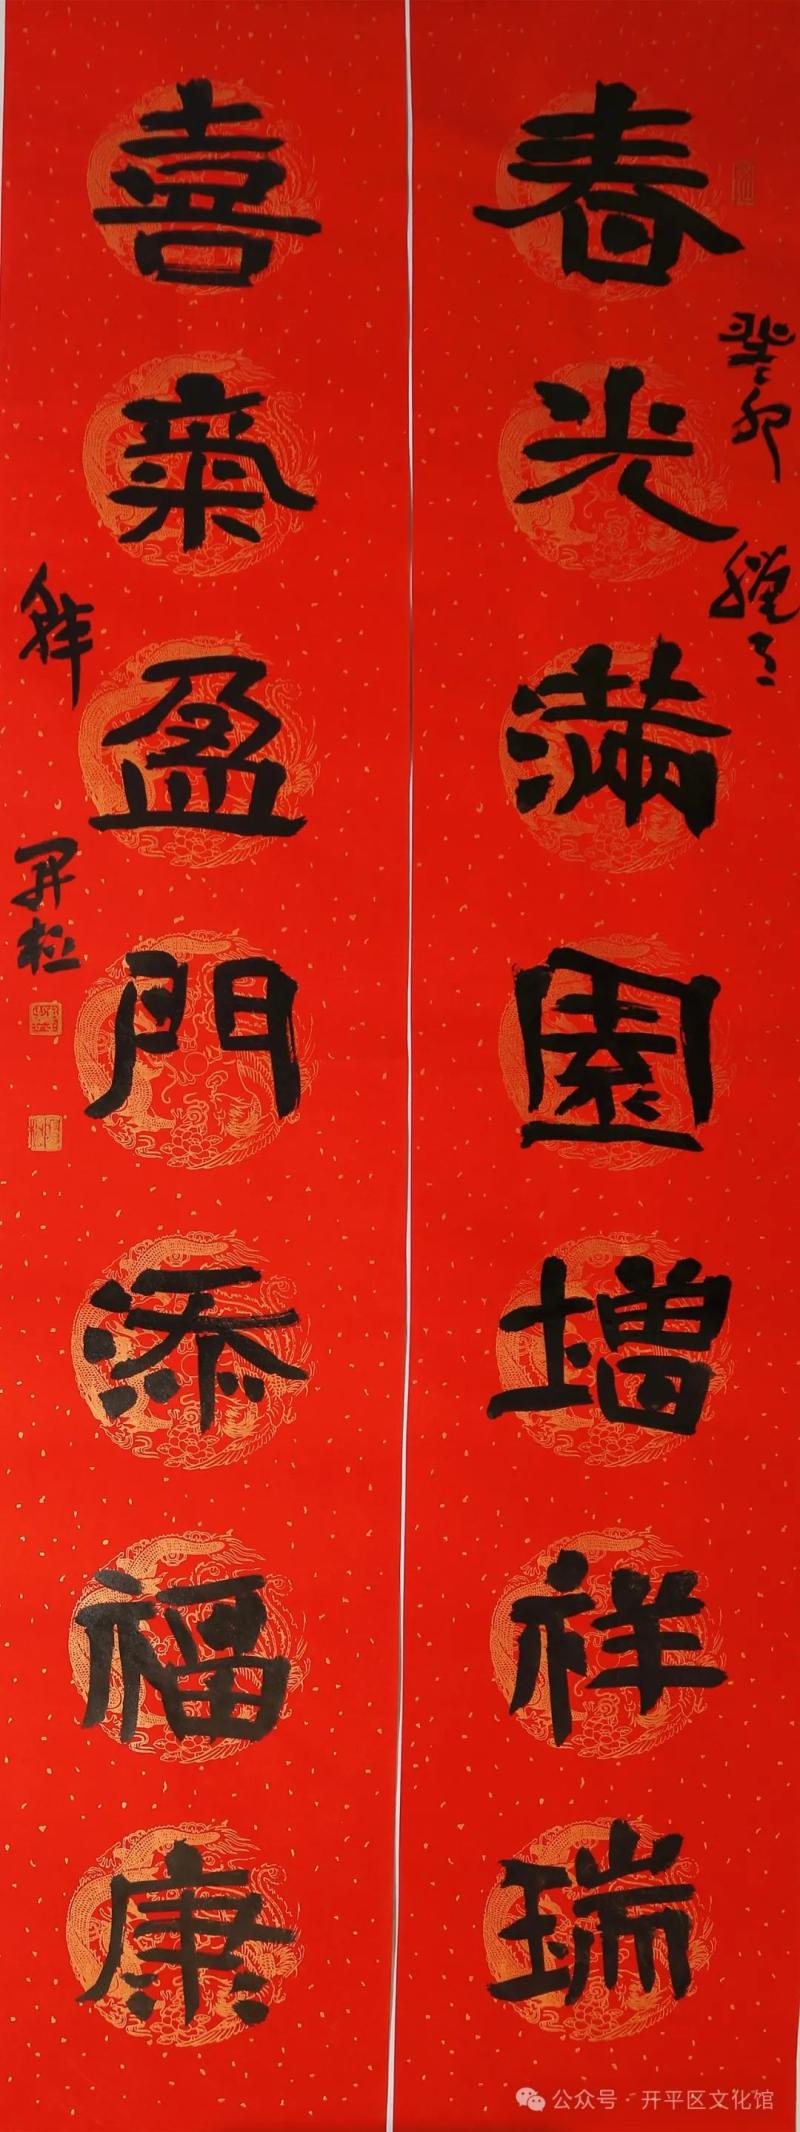 春光滿園增祥瑞
癸卯
喜氣盈門添福康
公众号·开平区文化馆